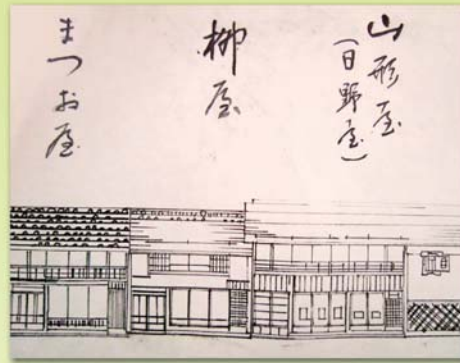 山形屋
(日野屋)
柳屋
まつお屋